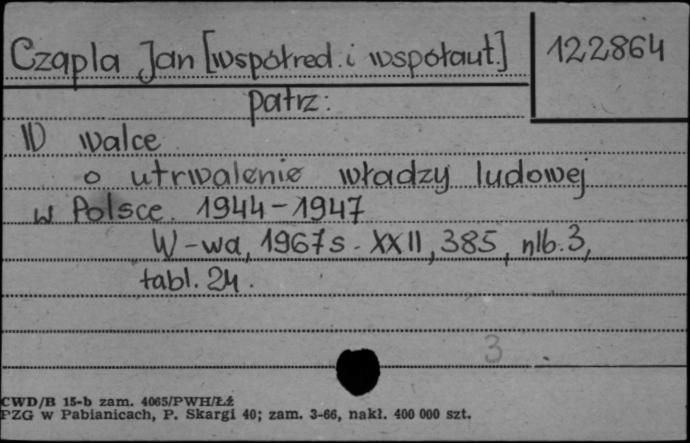 Czapla Jan [współred. i współaut.]
122864
patrz:
W walce
o utrwalenie władzy ludowej
w Polsce. 1944-1947
W-wa, 1967 s. XXII, 385, nlb. 3,
tabl. 24.
3
CWD/B 15-b zam. 4065/PWH/Łź
PZG w Pabianicach, P. Skargi 40; zam. 3-66, nakł. 400 000 szt.